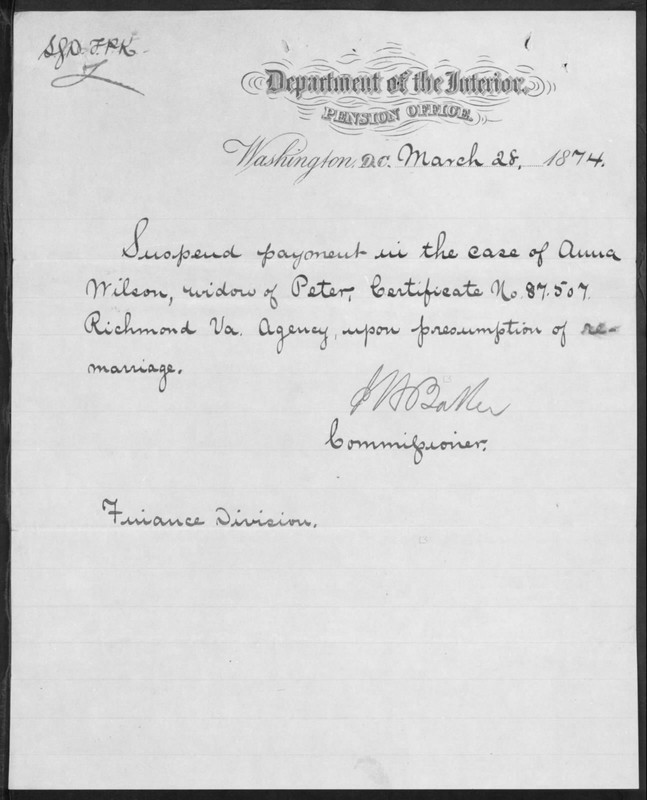 Department of the Interior.
PENSION OFFICE.
Washington, D.C. March 28, 1874.
Suspend payment in the case of Anna
Wilson, widow of Peter, Certificate No. 87.507.
Richmond Va. Agency, upon presumption of re-
marriage.
J H Baker
Commissioner.
Finance Division.